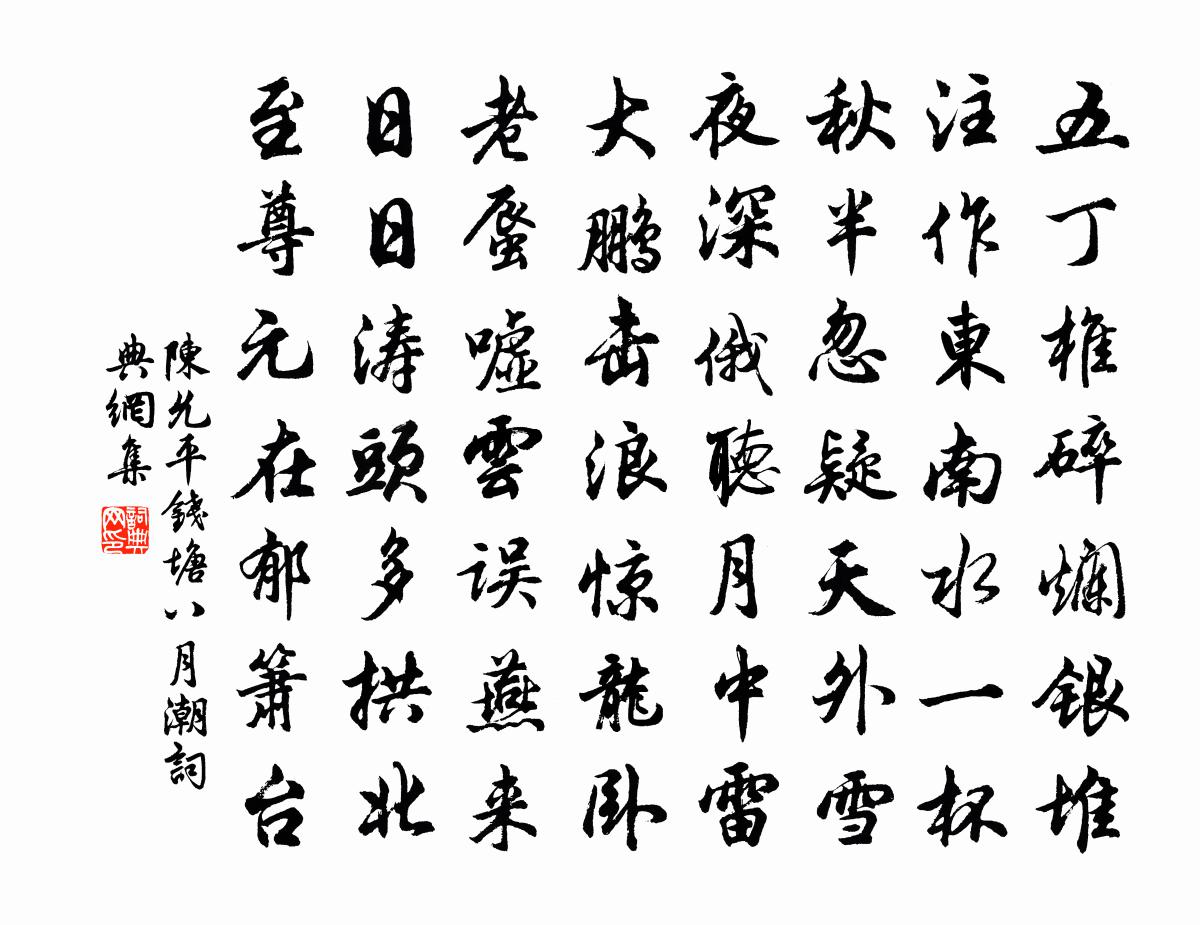 五丁椎碎爛銀堆
注作東南水一杯
秋半忽疑天外雪
夜深俄聽月中雷
大鵬击浪惊龍卧
老蜃嘘雲误燕来
日日涛頭多拱北
至尊元在郁箫台
陳允平錢塘八月潮詞
典網集
詞典网印